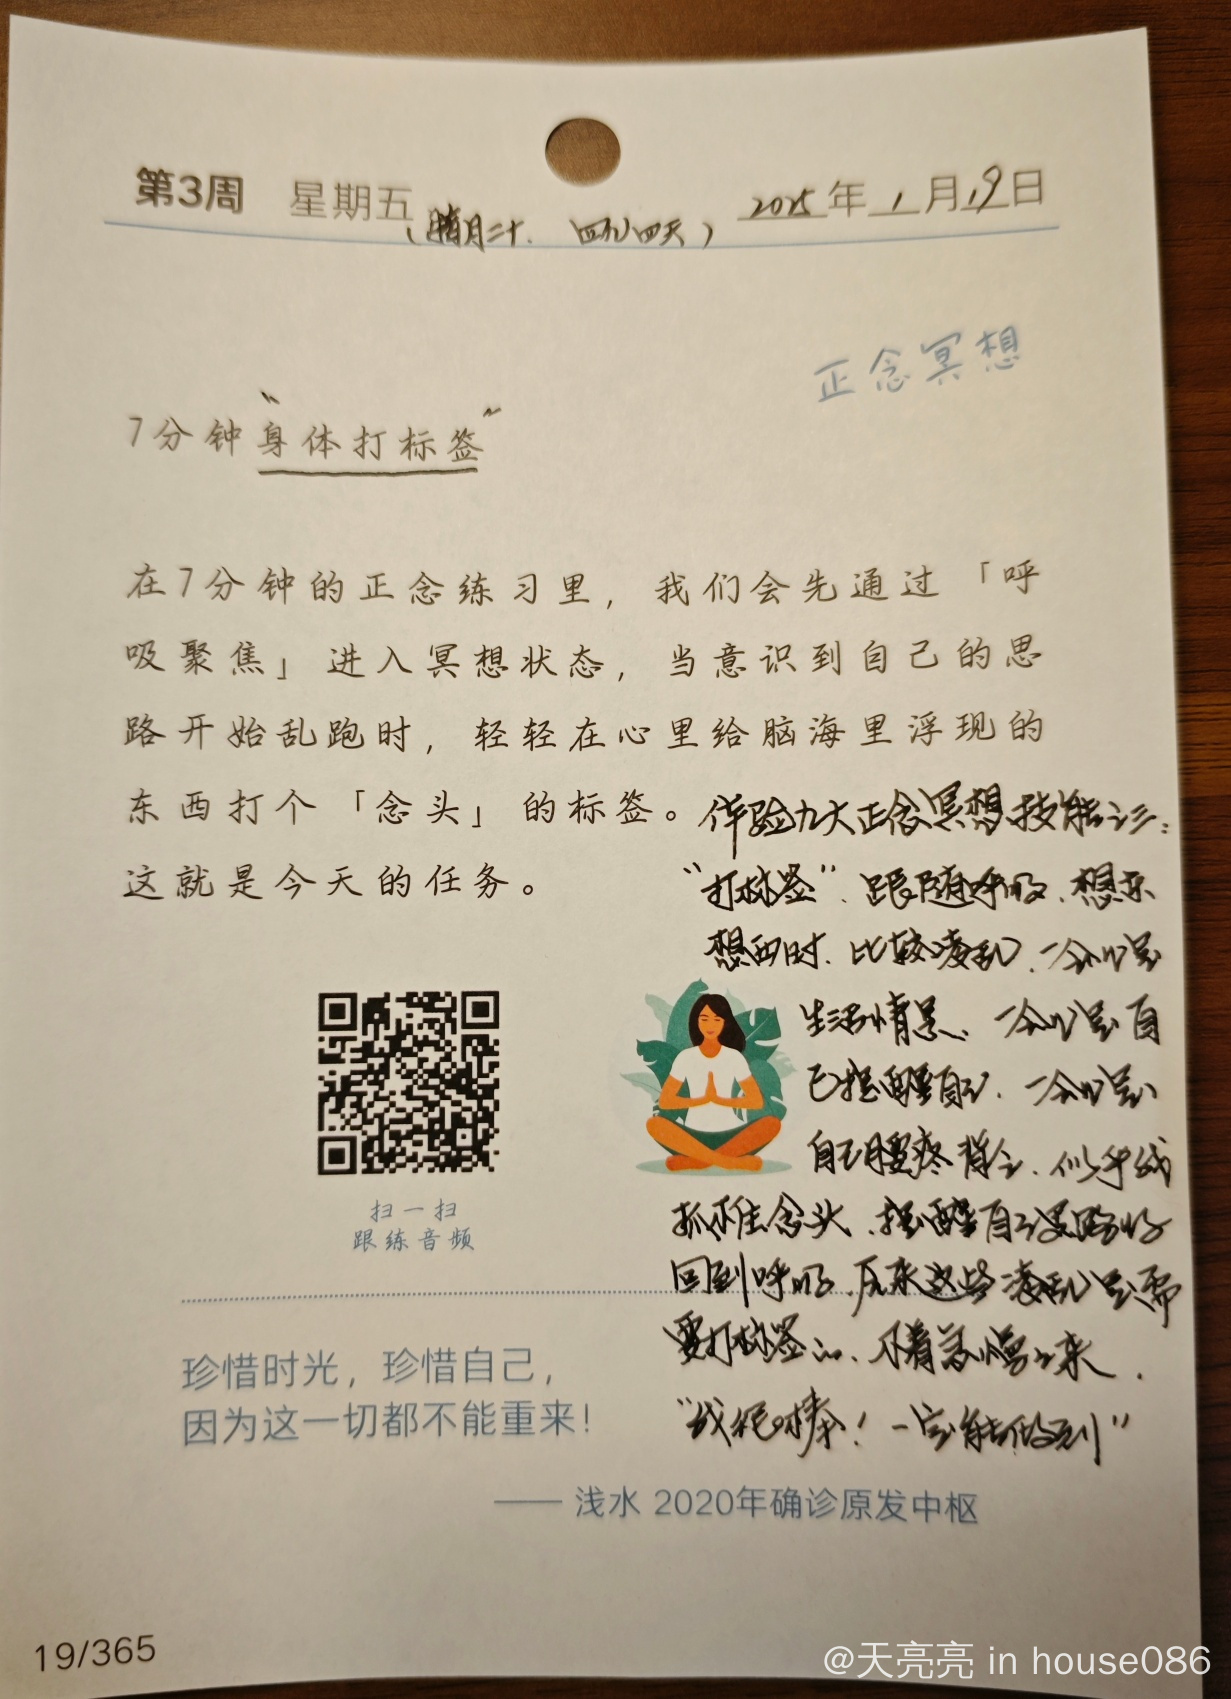 第3周 星期五 2025年1月19日
(腊月二十. 四九四天)
正念冥想
7分钟“身体打标签”
在7分钟的正念练习里，我们会先通过「呼
吸聚焦」进入冥想状态，当意识到自己的思
路开始乱跑时，轻轻在心里给脑海里浮现的
东西打个「念头」的标签。
这就是今天的任务。
体验九大正念冥想技能之三:
“打标签”. 跟随呼吸. 想东
想西时. 比较凌乱. 一会儿是
生活情景、一会儿是自
己提醒自己. 一会儿是
自己腰疼背
抓住念头. 提醒自己
回到呼吸. 原来这些凌乱只需
要打标签 不着急慢慢来.
“我很棒! 一定能做到”
扫一扫
跟练音频
珍惜时光，珍惜自己，
因为这一切都不能重来！
—— 浅水 2020年确诊原发中枢
19/365
@天亮亮 in house086